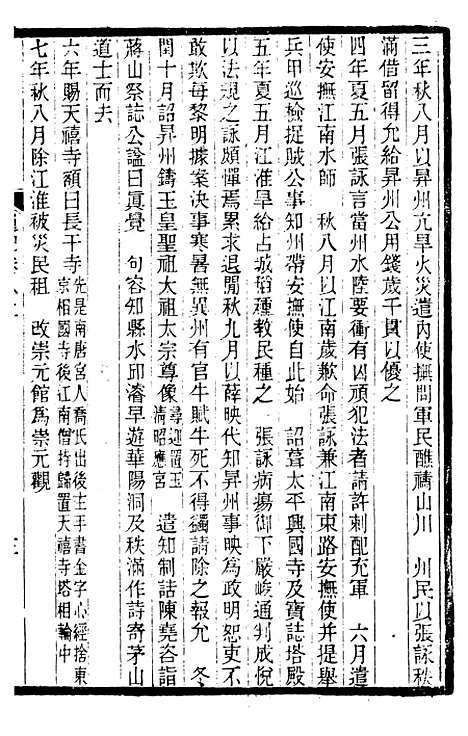 三年秋八月以昇州亢旱火災遣內使撫問軍民醮禱山川　州民以張詠秩
滿借留得允給昇州公用錢歲千貫以優之
四年夏五月張詠言當州水陸要衝有囚頑犯法者請許刺配充軍　六月遣
使安撫江南水師　秋八月以江南歲歉命張詠兼江南東路安撫使并提舉
兵甲巡檢捉賊公事知昇州帶安撫使自此始　詔葺太平興國寺及寶誌塔殿
五年夏五月江淮旱給占城稻種教民種之　張詠病瘍御下嚴峻通判成悅
以法規之詠頗憚焉累求退閒秋九月以薛映代知昇州事映為政明恕吏不
敢欺每黎明據案決事寒暑無異州有官牛賦牛死不得蠲請除之報允　冬
閏十月詔昇州鑄玉皇聖祖太祖太宗尊像尋迎置玉清昭應宮　遣知制誥陳堯咨詣
蔣山祭誌公謚曰眞覺　句容知縣水邱濬早遊華陽洞及秩滿作詩寄茅山
道士而去
六年賜天禧寺額曰長干寺先是南唐宮人喬氏出後主手書金字心經捨東京相國寺後江南僧持歸置天禧寺塔相輪中
七年秋八月除江淮被災民租　改崇元館為崇元觀